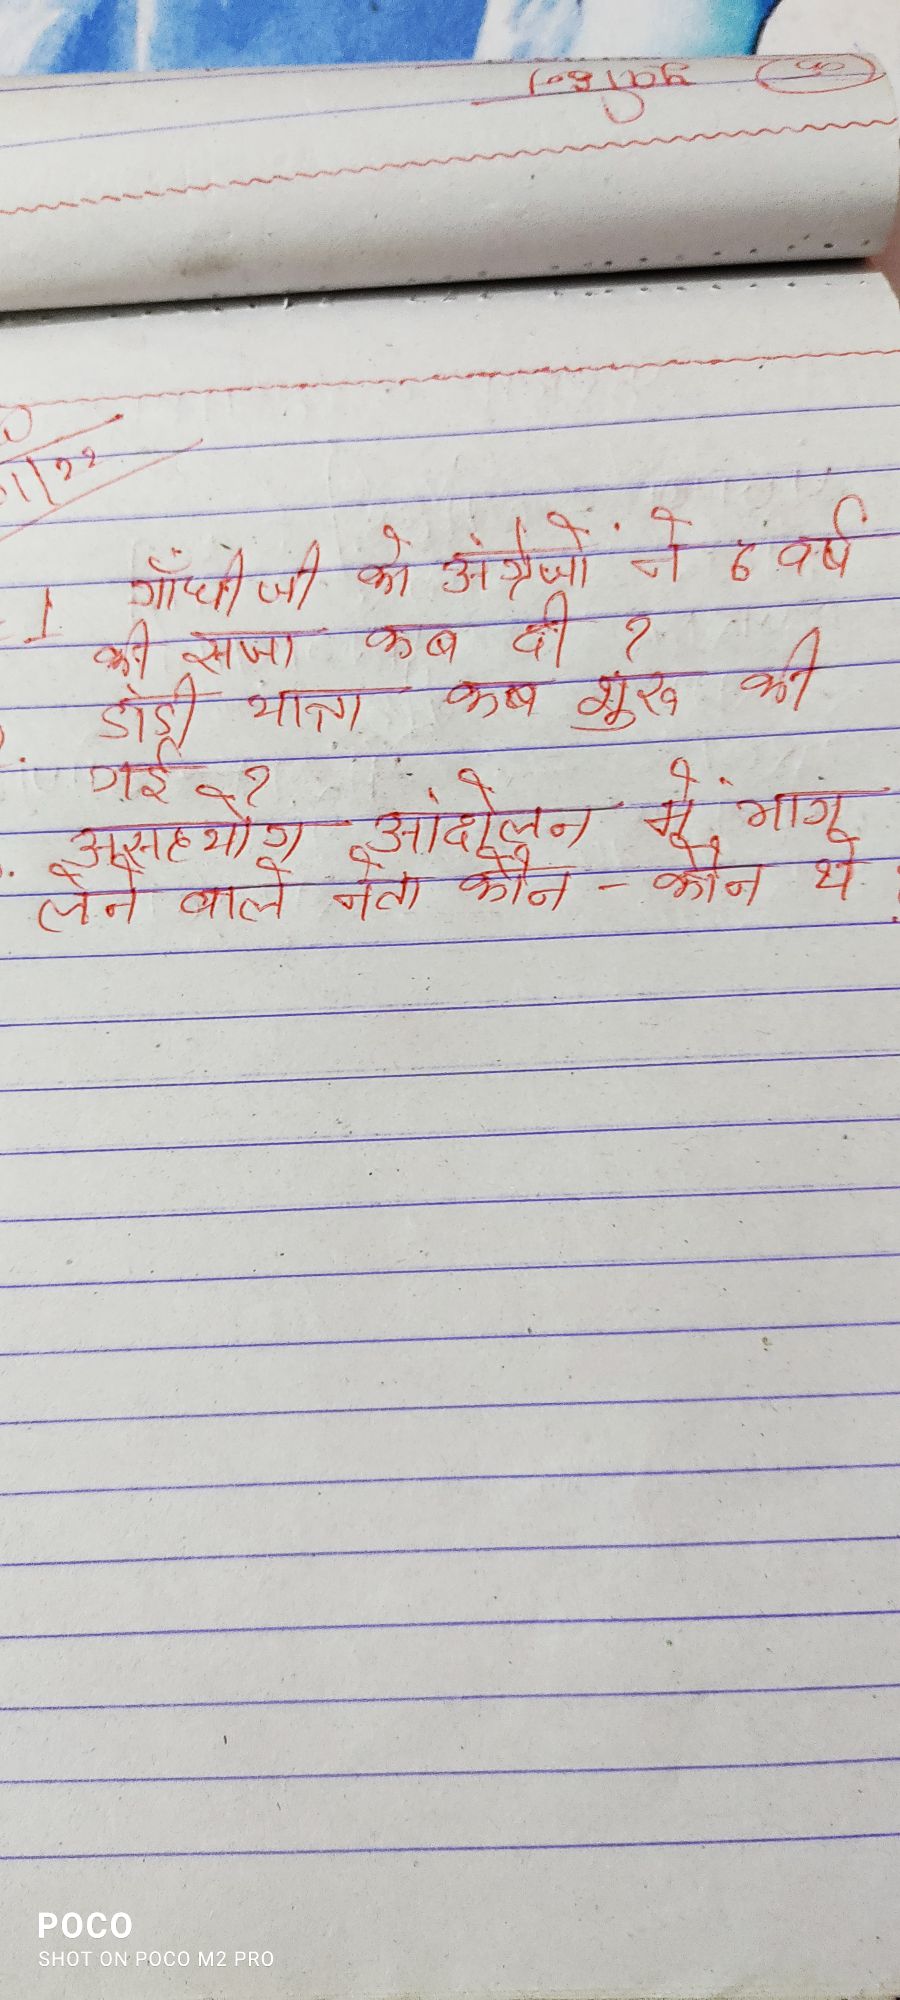 1 गाँधी जी को अंग्रेजों ने 6 वर्ष
की सजा कब दी ?
डांडी यात्रा कब शुरू की
गई ?
असहयोग आंदोलन में भाग
लेने वाले नेता कौन - कौन थे ?
POCO
SHOT ON POCO M2 PRO